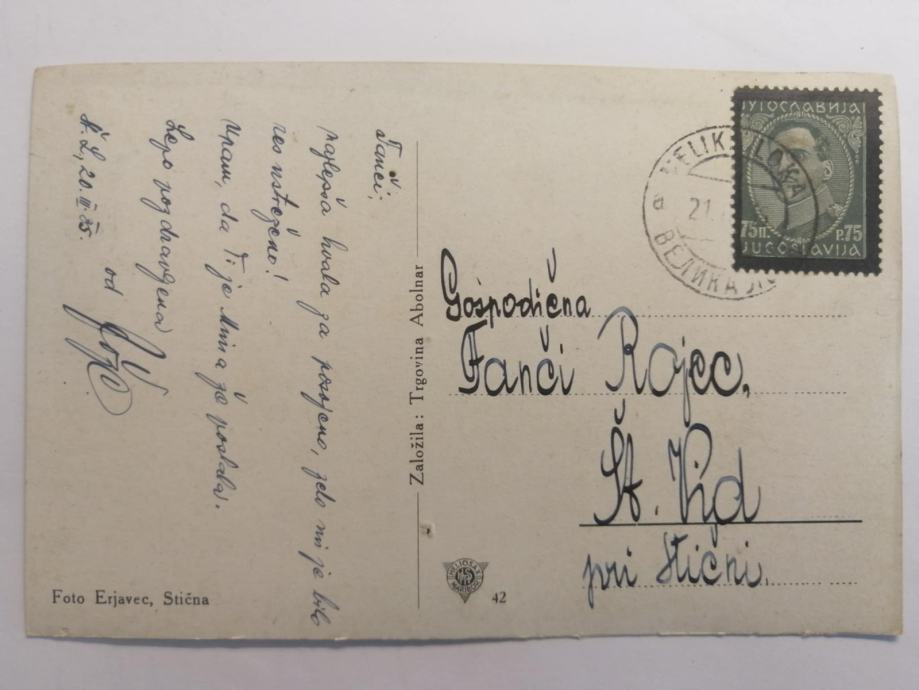 Fanči,
najlepša hvala za posojeno, zelo mi je bilo
res ustreženo!
Upam, da Ti je Mina že poslala.
Lepo pozdravljena
od
20. III. 35.
Založila: Trgovina Abolnar
Foto Erjavec, Stična
42
ЈУГОСЛАВИЈА
75П. P.75
JUGOSLAVIJA
VELIKA LOKA
21.
ВЕЛИКА ЛО
Gospodična
Fanči Rojec,
Št. Vid
pri Stični.